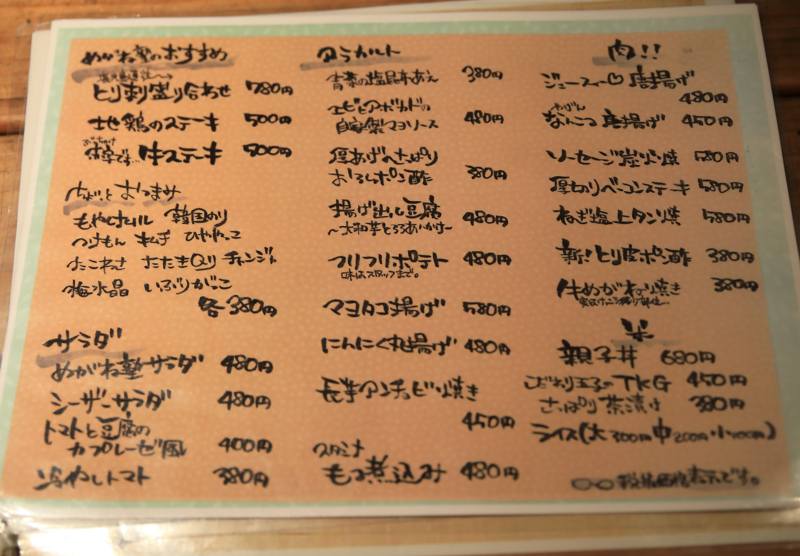 めがね塾のおすすめ
とり刺盛り合わせ 780円
地鶏のステーキ 500円
牛ステキ 800円
ちょいと おつまみ
もやしナムル 韓国のり
つけもん キムチ ひややっこ
たこわさ おたまQり チャンジャ
梅水晶 いぶりがっこ
各380円
サラダ
めがね塾サラダ 480円
シーザーサラダ 480円
トマトと豆腐の
カプレーゼ風 400円
冷やしトマト 380円
アラカルト
青菜の塩昆布あえ 380円
エビとアボカドの
自家製マヨソース 480円
厚あげへさっぱり
おろしポン酢 380円
揚げ出し豆腐
〜大和芋とろろあいかけ〜 480円
フリフリポテト 480円
味はスタッフまで。
マヨタコ揚げ 580円
にんにく丸揚げ 480円
長芋アンチョビ焼き
450円
スタミナ
もつ煮込み 480円
肉!!
ジューシィー♡唐揚げ
480円
やげん
なんこつ唐揚げ 450円
ソーセージ炭火焼 580円
厚切りベーコンステーキ 580円
ねぎ塩上タン焼 580円
新!とり皮ポン酢 380円
牛めがねり焼き 380円
米
親子丼 680円
こだわり玉子のTKG 450円
さっぱり茶漬け 380円
ライス(大300円 中200円 小100円)
税抜価格表示です。